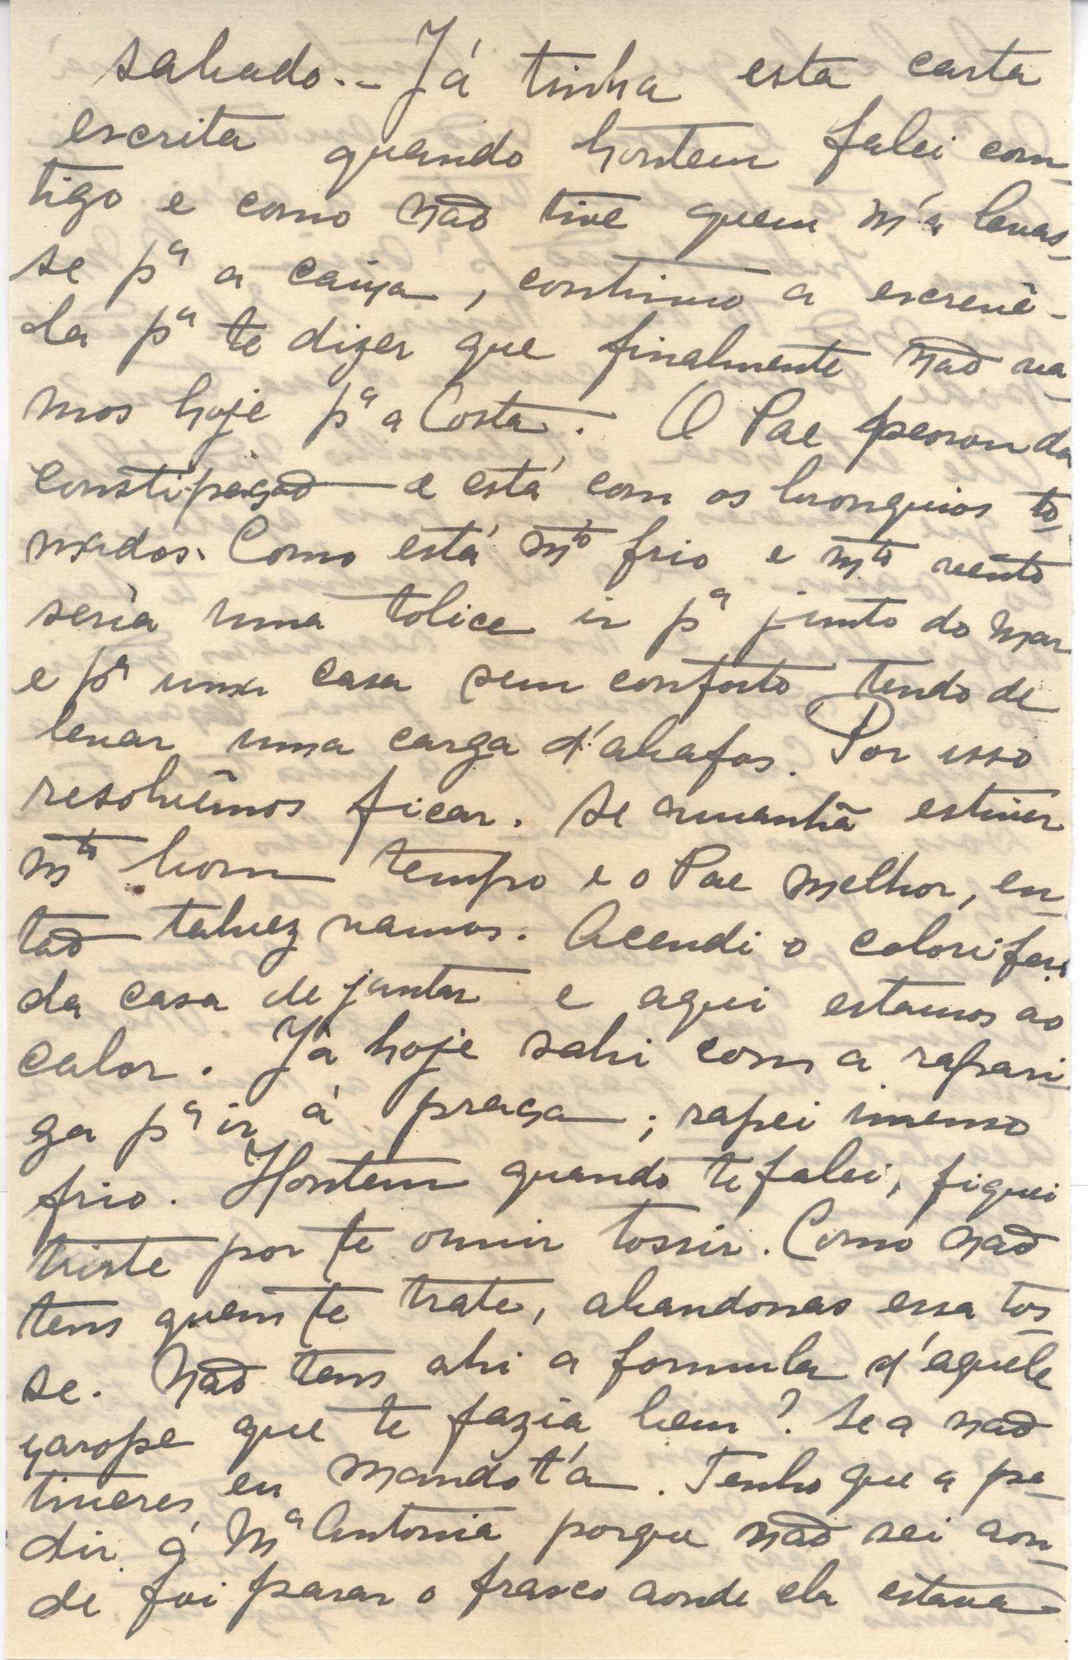 sabado.- Já tinha esta carta
escrita quando hontem falei com-
tigo e como não tive quem m'a levas-
se pª a caixa, continuo a escrevê-
la pª te dizer que finalmente não va-
mos hoje pª a Costa. O Pae peorou da
constipação e está com os bronquios to-
mados. Como está mtº frio e mtº vento
seria uma tolice ir pª junto do mar
e pª uma casa sem conforto tendo de
levar uma carga d'abafos. Por isso
resolvêmos ficar. Se amanhã estiver
mtº bom tempo e o Pae melhor, en-
tão talvez vamos. Acendi o calorifero
da casa de jantar e aqui estamos ao
calor. Já hoje sahi com a rapari
ga pª ir á praça; rapei imenso
frio. Hontem quando te falei, fiquei
triste por te ouvir tossir. Como não
tens quem te trate, abandonas essa tos
se. Não tens ahi a formula d'aquêle
xarope que te fazia bem? Se a não
tiveres, eu mando-t'a. Tenho que a pe-
dir á Mª Antonia porque não sei aon-
de foi parar o frasco aonde ela estava